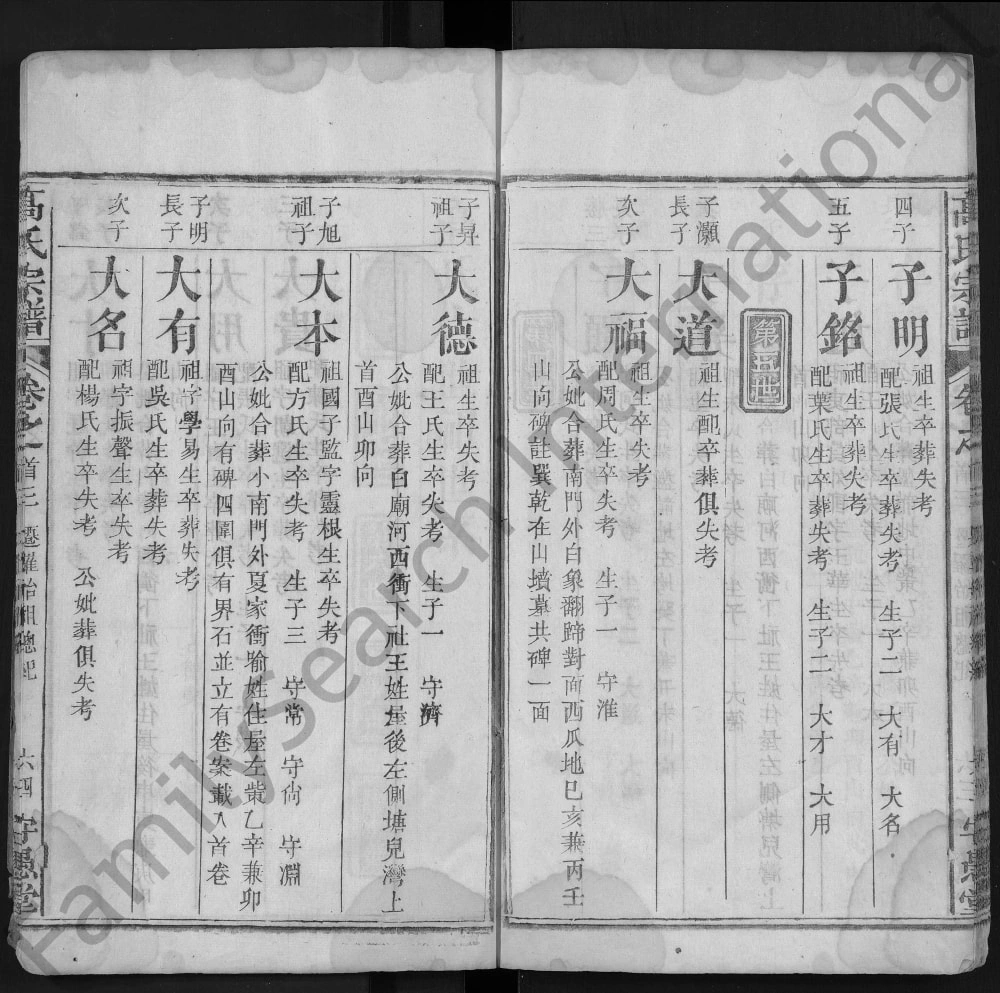 高氏宗譜
四子
子明
祖生卒葬失考
配張氏生卒葬失考 生子二 大有 大名
五子
子銘
祖生卒葬失考
配葉氏生卒葬失考 生子二 大才 大用
第五世
子灝
長子
大道
祖生配卒葬俱失考
次子
大福
祖生卒失考
配周氏生卒失考 生子一 守淮
公妣合葬南門外白象翻蹄對面西瓜地巳亥兼丙壬
山向碑註巽乾在山墳墓共碑一面
子昇
祖子
大德
祖生卒失考
配王氏生卒失考 生子一 守濟
公妣合葬白廟河西衝下社王姓屋後左側塘兒灣上
首酉山卯向
子旭
祖子
大本
祖國子監字靈根生卒失考
配方氏生卒失考 生子三 守常 守尙 守淵
公妣合葬小南門外夏家衝喻姓住屋左柴乙辛兼卯
酉山向有碑四圍俱有界石並立有卷案載入首卷
子明
長子
大有
祖字學易生卒葬失考
配吳氏生卒葬失考
次子
大名
祖字振聲生卒失考
配楊氏生卒失考 公妣葬俱失考
高氏宗譜
卷之首三 遷羅始祖總記
六四 守愚堂
FamilySearch International